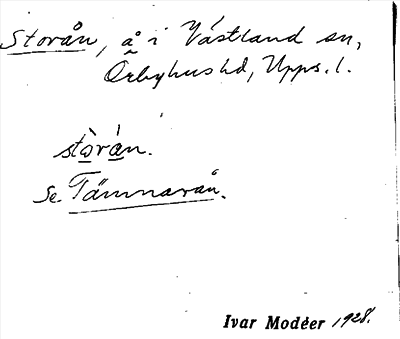 Storån, å i Västland sn,
Örbyhus hd, Upps. l.
stòrån.
Se Tämnarån.
Ivar Modéer 1928.